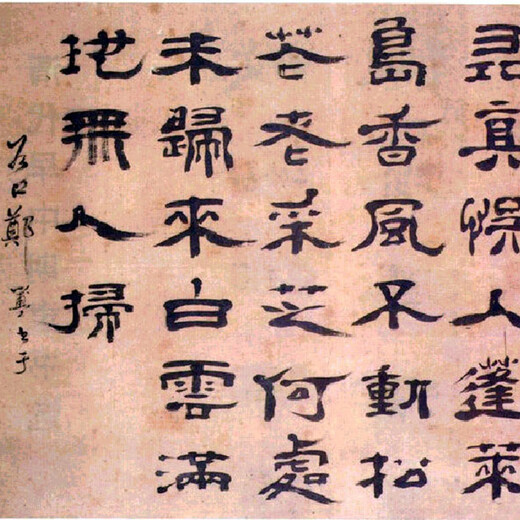 尋真悞入蓬萊
島香風不動松
花老采芝何處
未歸來白雲滿
地無人掃
谷口鄭簠書于